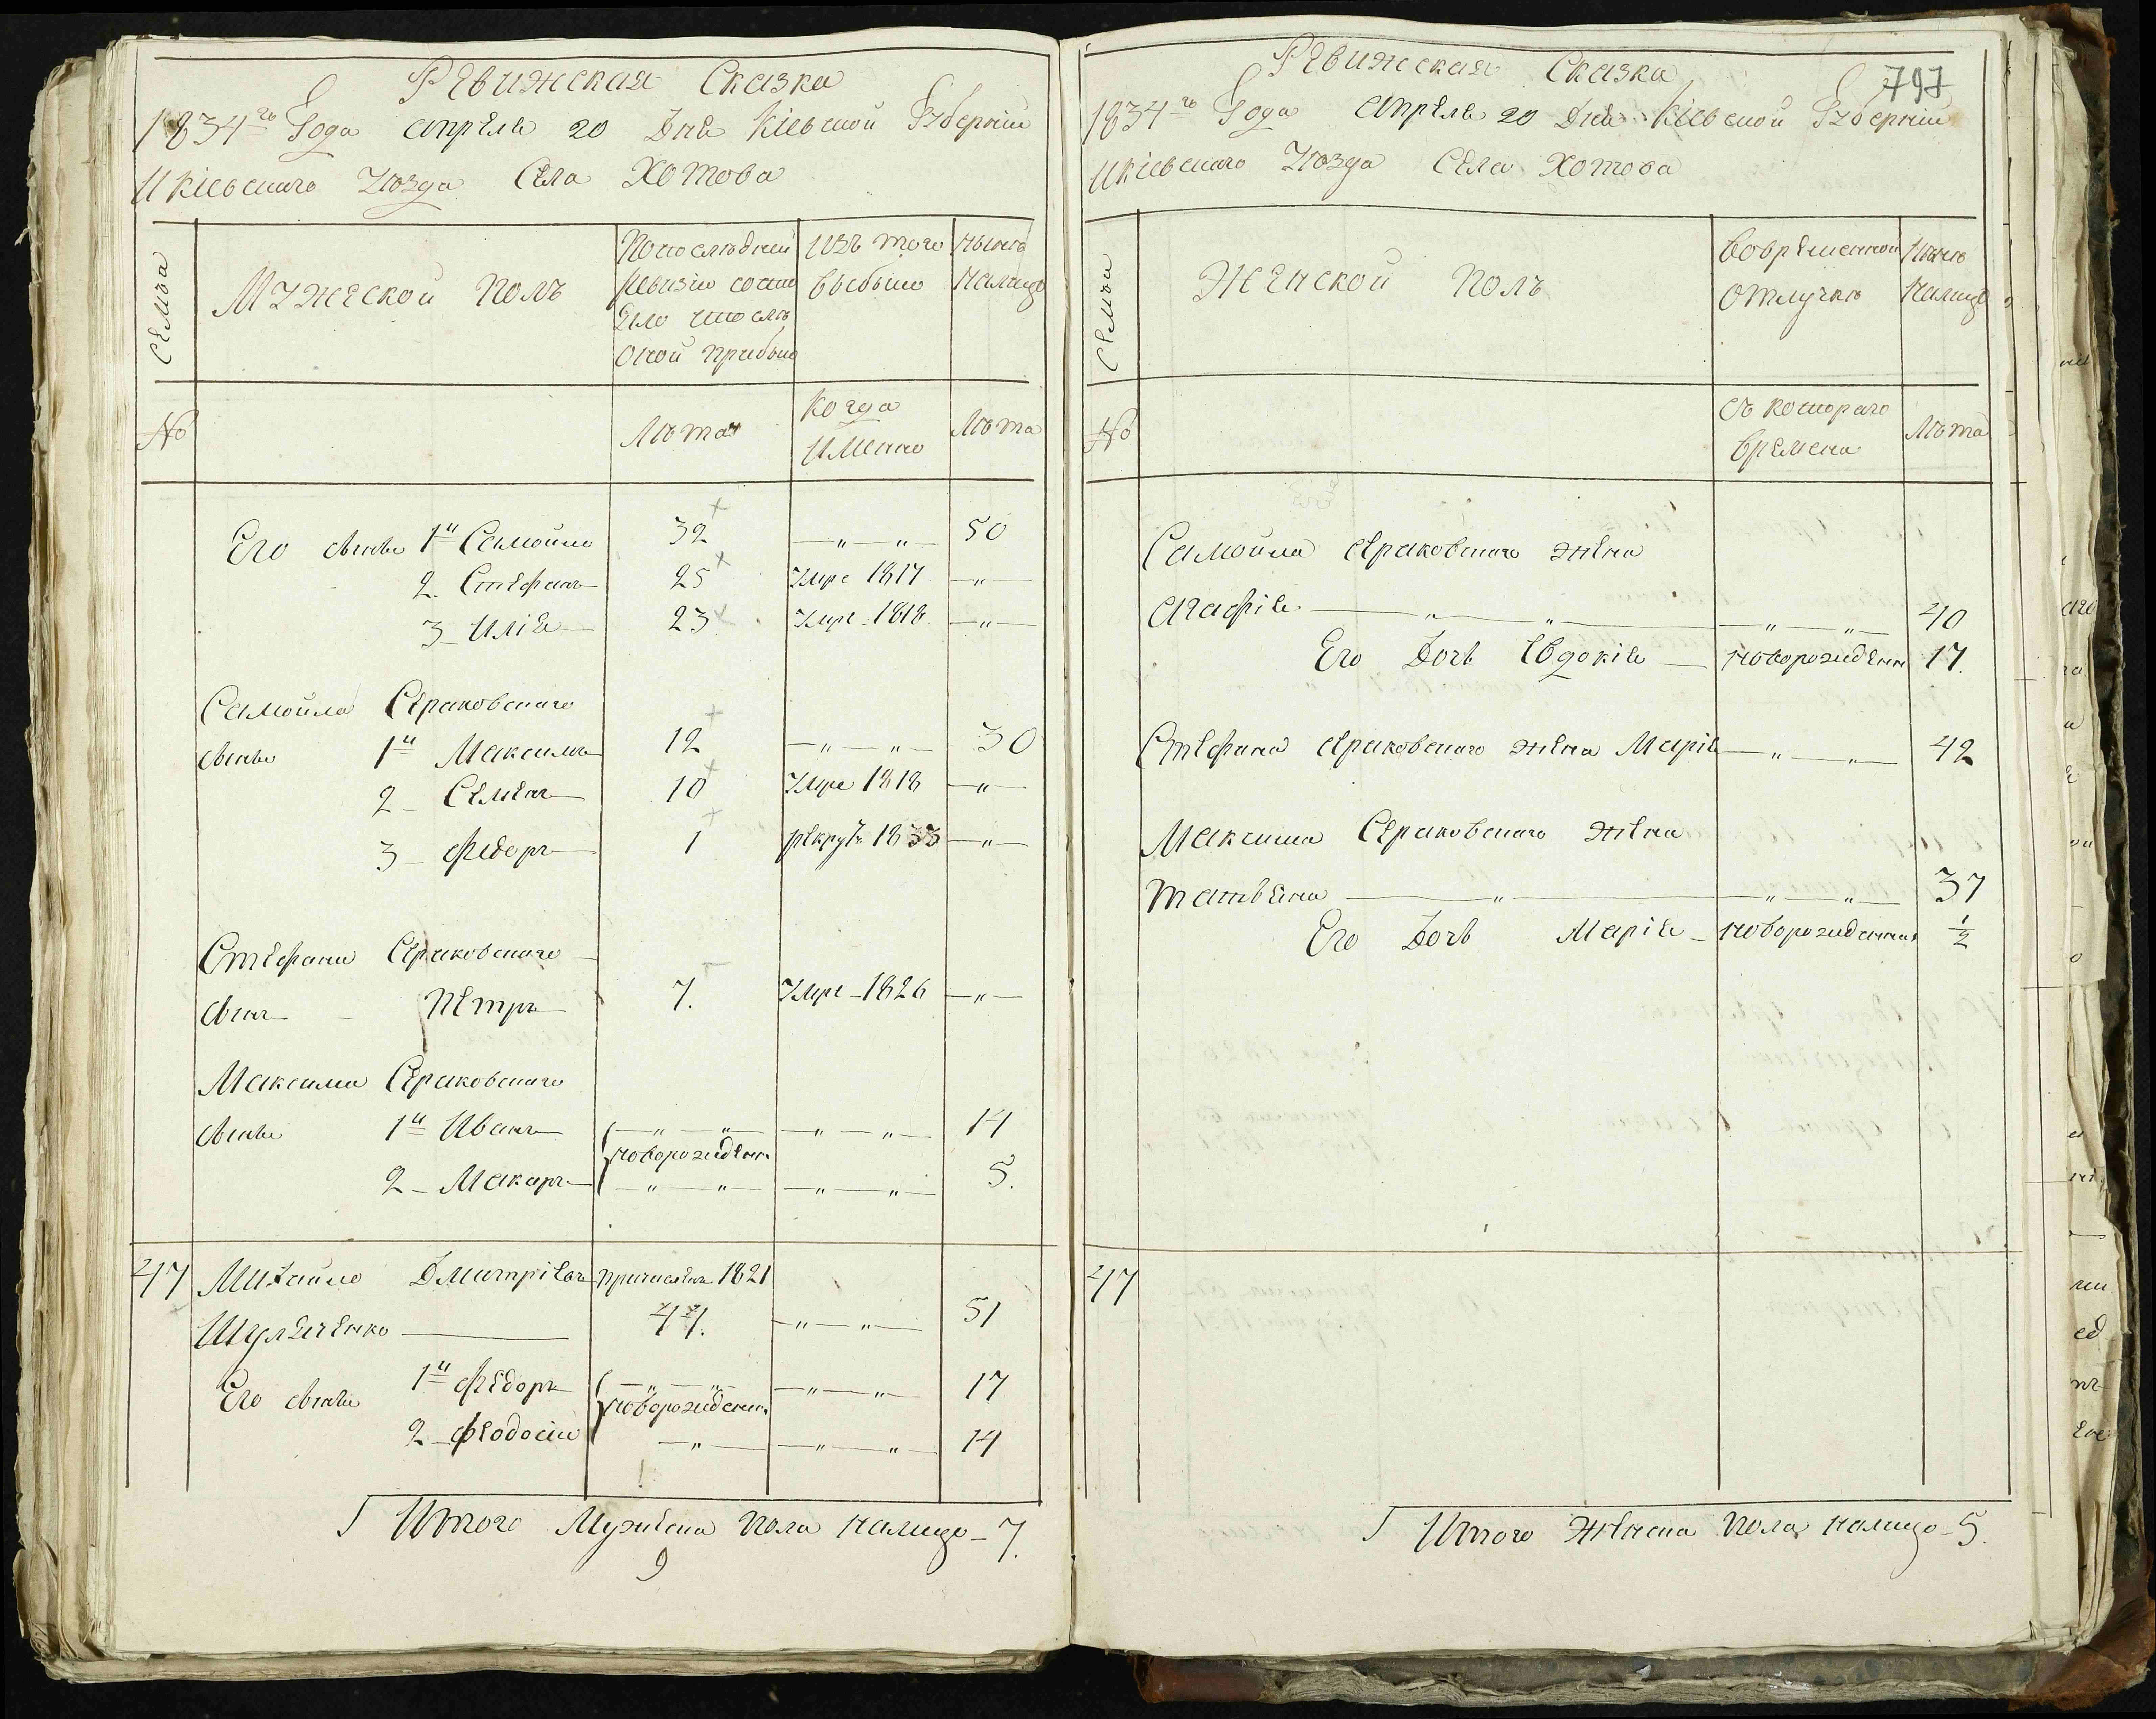 Ревижская Сказка
1834го Года апреля 20 Дня Кіевской Губерніи
И Кіевскаго Уѣзда Села Хотова
Семья
Мужеской Полъ
По последней
ревизіи состо
яло и после
оной прибыло
Изъ того
выбыло
Нынѣ
налицо
№
Лѣта
Когда
Именно
Лѣта
Его сыны 1й Самойло 32 —„—„— 50
2. Стефанъ 25 Умре 1817 —„—
3 Илія 23 Умре 1818 —„—
Самойла Сераковскаго
сыны 1й Максимъ 12 —„—„— 30
2 Семенъ 10 Умре 1818 —„—
3 Федоръ 1 рекрут. 1833 —„—
Стефана Сераковскаго
сынъ Петръ 7. Умре 1826 —„—
Максима Сераковскаго
сыны 1й Иванъ —„—„— —„—„— 14
новорожден
2 Макаръ —„—„— —„—„— 5.
47 Михайло Дмитріевъ причисленъ 1821
Шуляченко 47. —„—„— 51
Его сыны 1й Федоръ —„—„— —„—„— 17
новорожден.
2 Феодосій —„— —„—„— 14
Итого Мужеска пола налицо 7.
9
797
Ревижская Сказка
1834го Года апреля 20 Дня Кіевской Губерніи
И Кіевскаго Уѣзда Села Хотова
Семья
Женской Полъ
Во временной
отлучке
Нынѣ
налицо
№
Съ котораго
времена
Лѣта
Самойла Сераковскаго жена
Агафія —„—„— —„—„— 40
Его Дочь Евдокія новорожденн 17.
Стефана Сераковскаго жена Марія —„—„— 42
Максима Сераковскаго жена
Татьяна —„— —„—„— 37
Его Дочь Марія новорожденная ½
47
Итого Женска Пола налицо 5.